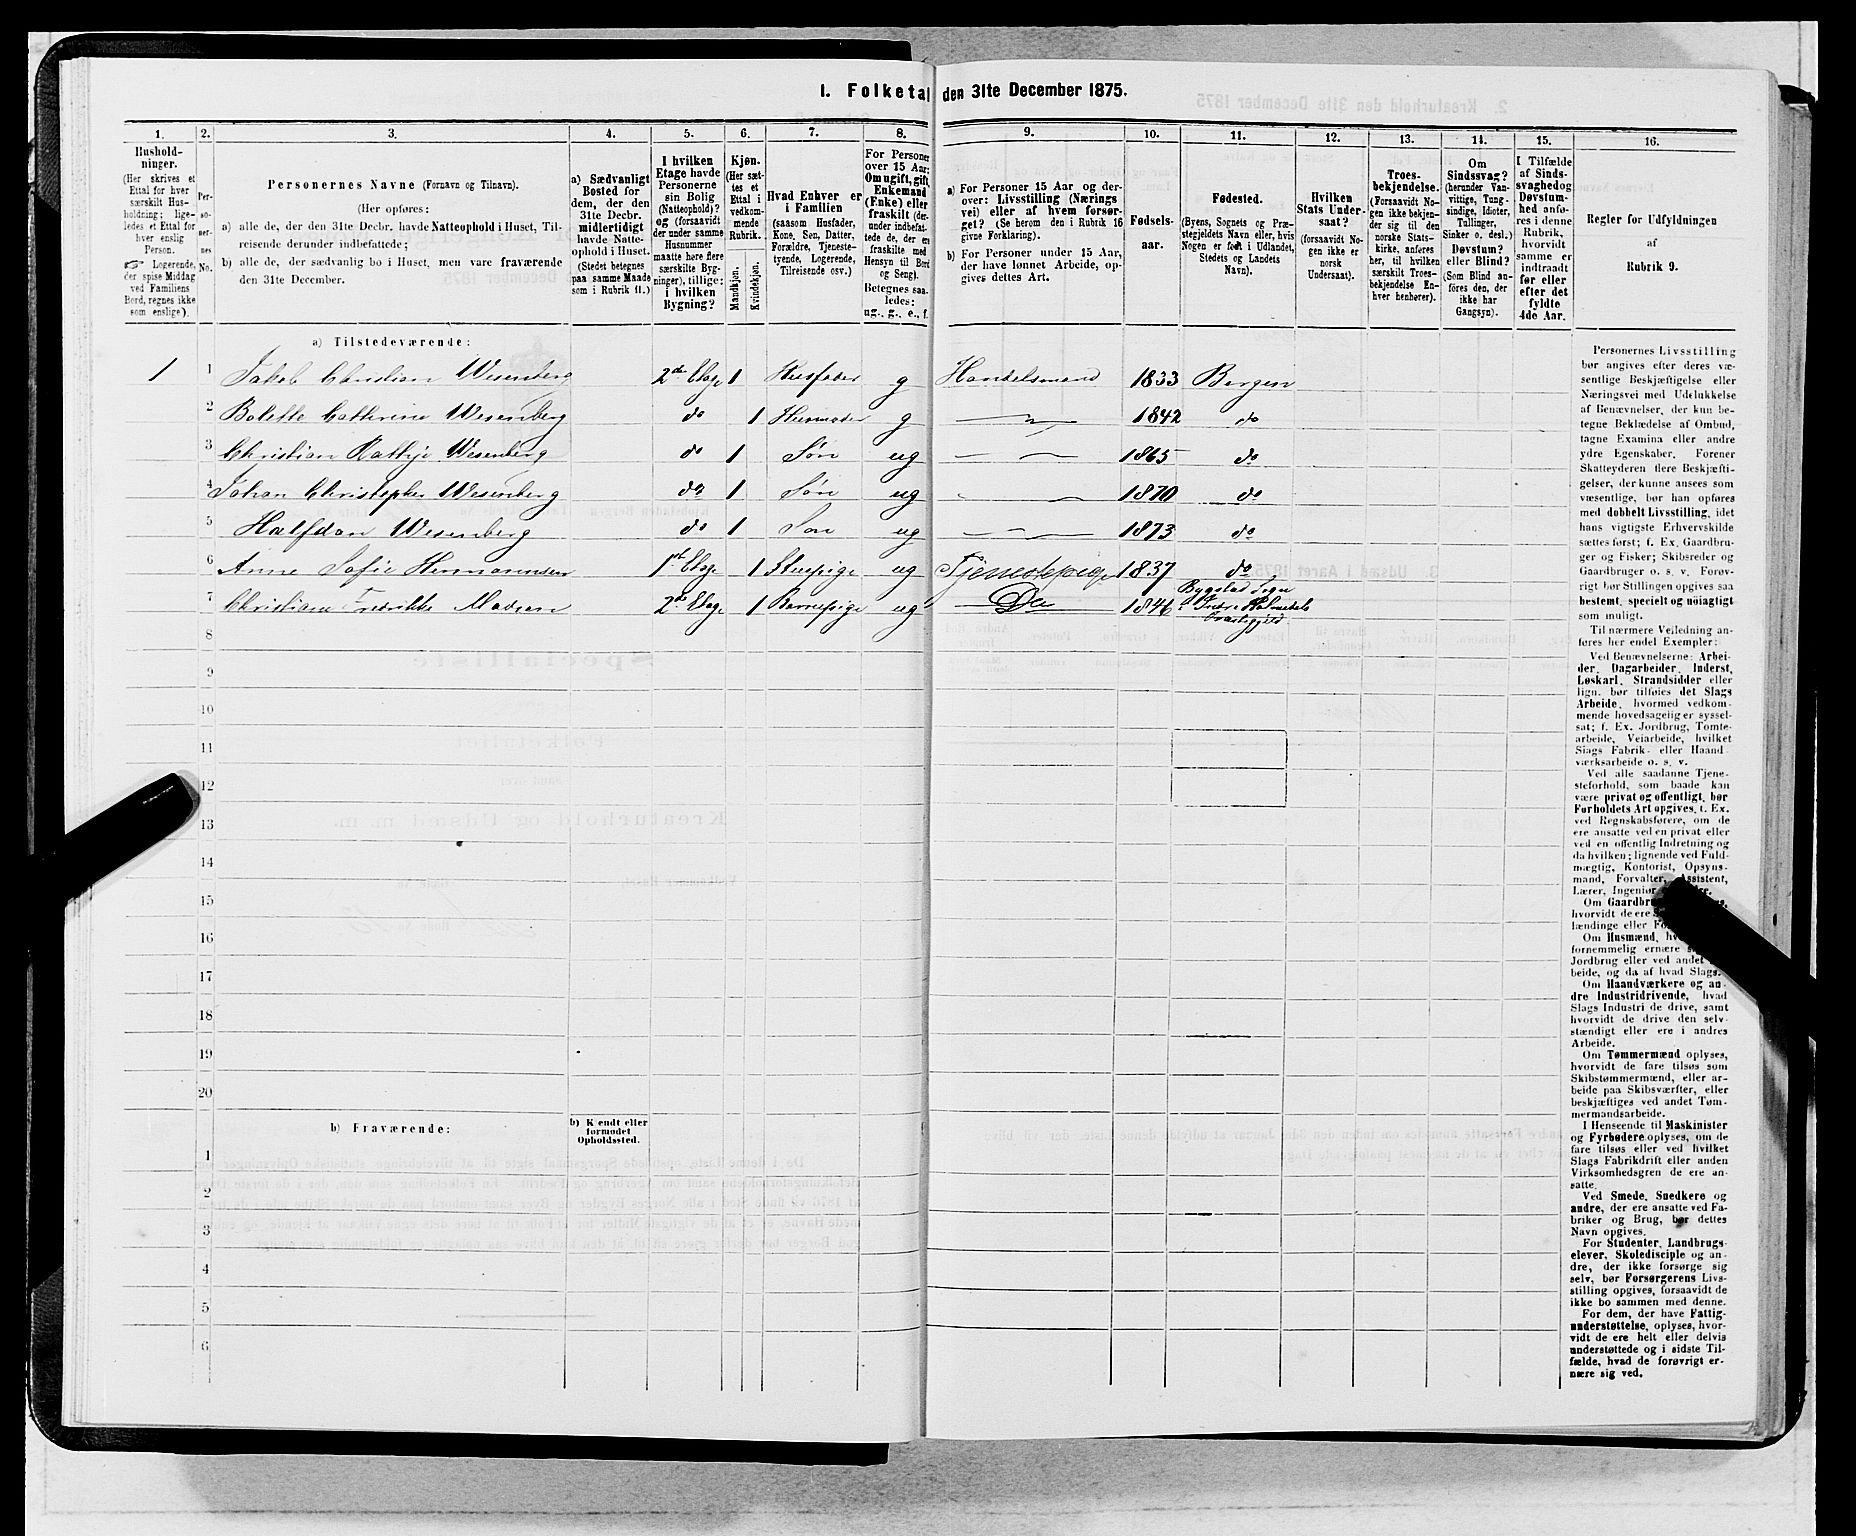 1. Folketal den 31te December 1875.
1. 2. 3. 4. 5. 6. 7. 8. 9. 10. 11. 12. 13. 14. 15. 16.
Hushold-
ninger.
(Her skrives et
Ettal for hver
særskilt Hus-
holdning; lige-
ledes et Ettal for
hver enslig
Person.
Logerende,
der spise Middag
ved Familiens
Bord, regnes ikke
som enslige).
Per-
so-
ner-
nes
No.
Personernes Navne (Fornavn og Tilnavn).
(Her opføres:
a) alle de, der den 31te Decbr. havde Natteophold i Huset, Til-
reisende derunder indbefattede;
b) alle de, der sædvanlig bo i Huset, men vare fraværende
den 31te December.
a) Sædvanligt
Bosted for
dem, der den
31te Decbr.
midlertidigt
havde Natte-
ophold i Huset.
(Stedet betegnes
paa samme Maade
som i Rubrik 11.)
I hvilken
Etage havde
Personerne
sin Bolig
(Natteophold)?
og (forsaavidt
der under samme
Husnummer
maatte høre flere
særskilte Byg-
ninger), tillige:
i hvilken
Bygning?
Kjøn.
(Her sæt-
tes et
Ettal i
vedkom-
mende
Rubrik.
Mandkjøn.
Kvindekjøn.
Hvad Enhver er
i Familien
(saasom Husfader,
Kone, Søn, Datter,
Forældre, Tjeneste-
tyende, Logerende,
Tilreisende osv.)
For Personer
over 15 Aar:
Om ugift, gift,
Enkemand
(Enke) eller
fraskilt (der-
under indbefat-
tede de, der ere
fraskilte med
Hensyn til Bord
og Seng).
Betegnes saa-
ledes:
ug., g., e., f.
a) For Personer 15 Aar og der-
over: Livsstilling (Nærings
vei) eller af hvem forsør-
get? (Se herom den i Rubrik 16
givne Forklaring).
b) For Personer under 15 Aar,
der have lønnet Arbeide, op-
gives dettes Art.
Fødsels-
aar.
Fødested.
(Byens, Sognets og Præ-
stegjeldets Navn eller, hvis
Nogen er født i Udlandet,
Stedets og Landets
Navn).
Hvilken
Stats Under-
saat?
(forsaavidt No-
gen ikke er
norsk
Undersaat).
Troes-
bekjendelse.
(Forsaavidt No-
gen ikke bekjen-
der sig til den
norske Stats-
kirke, anføres
her, til hvilken
særskilt Troes-
bekjendelse En-
hver henhører).
Om
Sindssvag?
(herunder Van-
vittige, Tung-
sindige, Idioter,
Tullinger,
Sinker o. desl.)
Døvstum?
eller Blind?
(Som Blind an-
føres den, der
ikke har
Gangsyn).
I Tilfælde
af Sinds-
svaghed og
Døvstum-
hed anfø-
res i denne
Rubrik,
hvorvidt
samme er
indtraadt
før eller
efter det
fyldte
4de Aar.
Regler for Udfyldningen
af
Rubrik 9.
a) Tilstedeværende:
1 1 Jakob Christian Wesenberg 2de Etage 1 Husfader g Handelsmand 1833 Bergen
2 Bolette Cathrine Wesenberg do 1 Husmoder g 1842 do
3 Christian Rathje Wesenberg do 1 Søn ug 1865 do
4 Johan Christopher Wesenberg do 1 Søn ug 1870 do
5 Halfdan Wesenberg do 1 Søn ug 1873 do
6 Anne Sofie Hermannsen 1ste Etage 1 Stuepige ug Tjenestepige 1837 do
7 Christiane Fredrikke Madsen 2de Etage 1 Barnepige ug Do 1846 Bygstad Sogn
i Indre Holmedals
Præstegjeld
8
9
10
11
12
13
14
15
16
17
18
19
20
b) Fraværende:
b) Kjendt eller
formodet
Opholdssted.
1
2
3
4
5
6
Personernes Livsstilling
bør angives efter deres væ-
sentlige Beskjæftigelse eller
Næringsvei med Udelukkelse
af Benævnelser, der kun be-
tegne Beklædelse af Ombud,
tagne Examina eller andre
ydre Egenskaber. Forener
Skatteyderen flere Beskjæfti-
gelser, der kunne ansees som
væsentlige, bør han opføres
med dobbelt Livsstilling, idet
hans vigtigste Erhvervskilde
sættes først; f. Ex. Gaardbru-
ger og Fisker; Skibsreder og
Gaardbruger o. s. v. Forøv-
rigt bør Stillingen opgives saa
bestemt, specielt og nøiagtigt
som muligt.
Til nærmere Veiledning an-
føres her endel Exempler:
Ved Benævnelserne: Arbei-
der, Dagarbeider, Inderst,
Løskarl, Strandsidder eller
lign. bør tilføies det Slags
Arbeide, hvormed vedkom-
mende hovedsagelig er syssel-
sat; f. Ex. Jordbrug, Tomte-
arbeide, Veiarbeide, hvilket
Slags Fabrik- eller Haand-
værksarbeide o. s. v.
Ved alle saadanne Tjene-
steforhold, som baade kan
være privat og offentligt, bør
Forholdets Art opgives, f. Ex.
ved Regnskabsførere, om de
ere ansatte ved en privat eller
ved en offentlig Indretning og
da hvilken; lignende ved Fuld-
mægtig, Kontorist, Opsyns-
mand, Forvalter, Assistent,
Lærer, Ingeniør
Om
hvorvidt de ere
lændinge eller
Om Husmænd,
fornemmelig ernære
Jordbrug eller ved andet
beide, og da af hvad Slags.
Om Haandværkere og an-
dre Industridrivende, hvad
Slags Industri de drive, samt
hvorvidt de drive den selv-
stændigt eller ere i andres
Arbeide.
Om Tømmermænd oplyses,
hvorvidt de fare tilsøs som
Skibstømmermænd, eller ar-
beide paa Skibsværfter, eller
beskjæftiges ved andet Tøm-
mermandsarbeide.
I Henseende til Maskinister
og Fyrbødere oplyses, om de
fare tilsøs eller ved hvilket
Slags Fabrikdrift eller anden
Virksomhedsgren de ere an-
satte.
Ved Smede, Snedkere og
andre, der ere ansatte ved Fa-
briker og Brug, bør dettes
Navn opgives.
For Studenter, Landbrugs-
elever, Skoledisciple og an-
dre, der ikke forsørge sig
selv, bør Forsørgerens Livs-
stilling opgives, forsaavidt de
ikke bo sammen med denne.
For dem, der have Fattig-
understøttelse, oplyses, hvor-
vidt de ere helt eller delvis
understøttede og i sidste Til-
fælde, hvad de forøvrigt er-
nære sig ved.